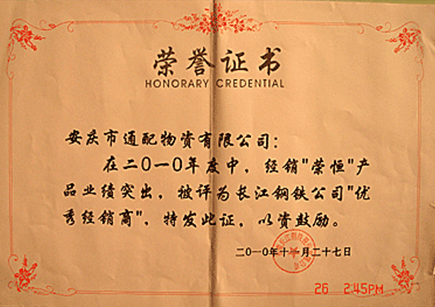 荣誉证书
HONORARY CREDENTIAL
安庆市通配物资有限公司:
在二〇一〇年度中,经销"荣恒"产
品业绩突出,被评为长江钢铁公司"优
秀经销商",特发此证,以资鼓励。
二〇一〇年十一月二十七日
26 2:45PM